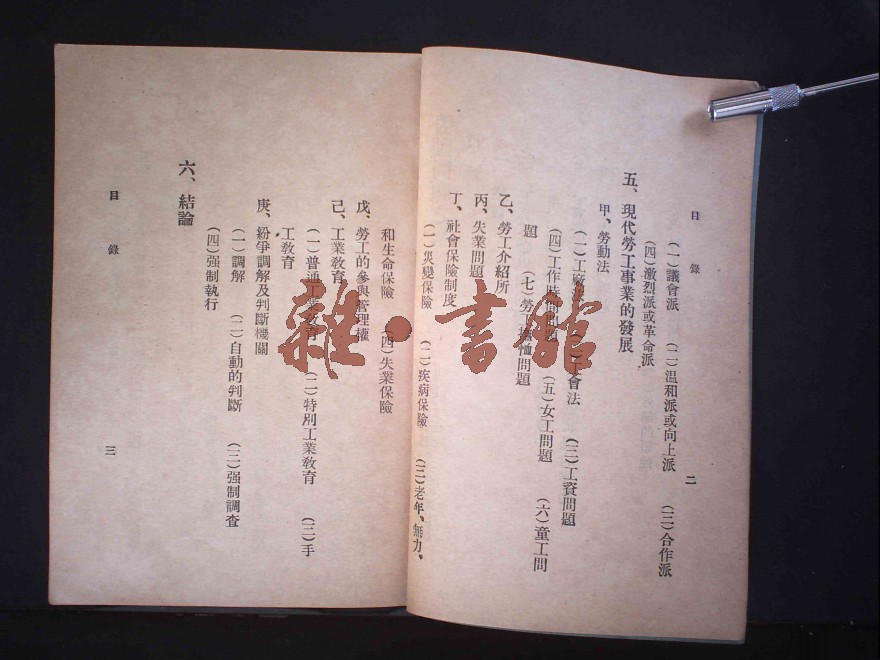 目錄
二
(一)議會派 (二)溫和派或向上派 (三)合作派
(四)激烈派或革命派
五、現代勞工事業的發展
甲、勞動法
(一)工廠法 (二)工會法 (三)工資問題
(四)工作時間問題 (五)女工問題 (六)童工問
題 (七)勞工撫恤問題
乙、勞工介紹所
丙、失業問題
丁、社會保險制度
(一)災變保險 (二)疾病保險 (三)老年、無力、
和生命保險 (四)失業保險
戊、勞工的參與管理權
己、工業教育
(一)普通工業教育 (二)特別工業教育 (三)手
工教育
庚、紛爭調解及判斷機關
(一)調解 (二)自動的判斷 (三)强制調查
(四)强制執行
六、結論
目錄
三
雜·書館